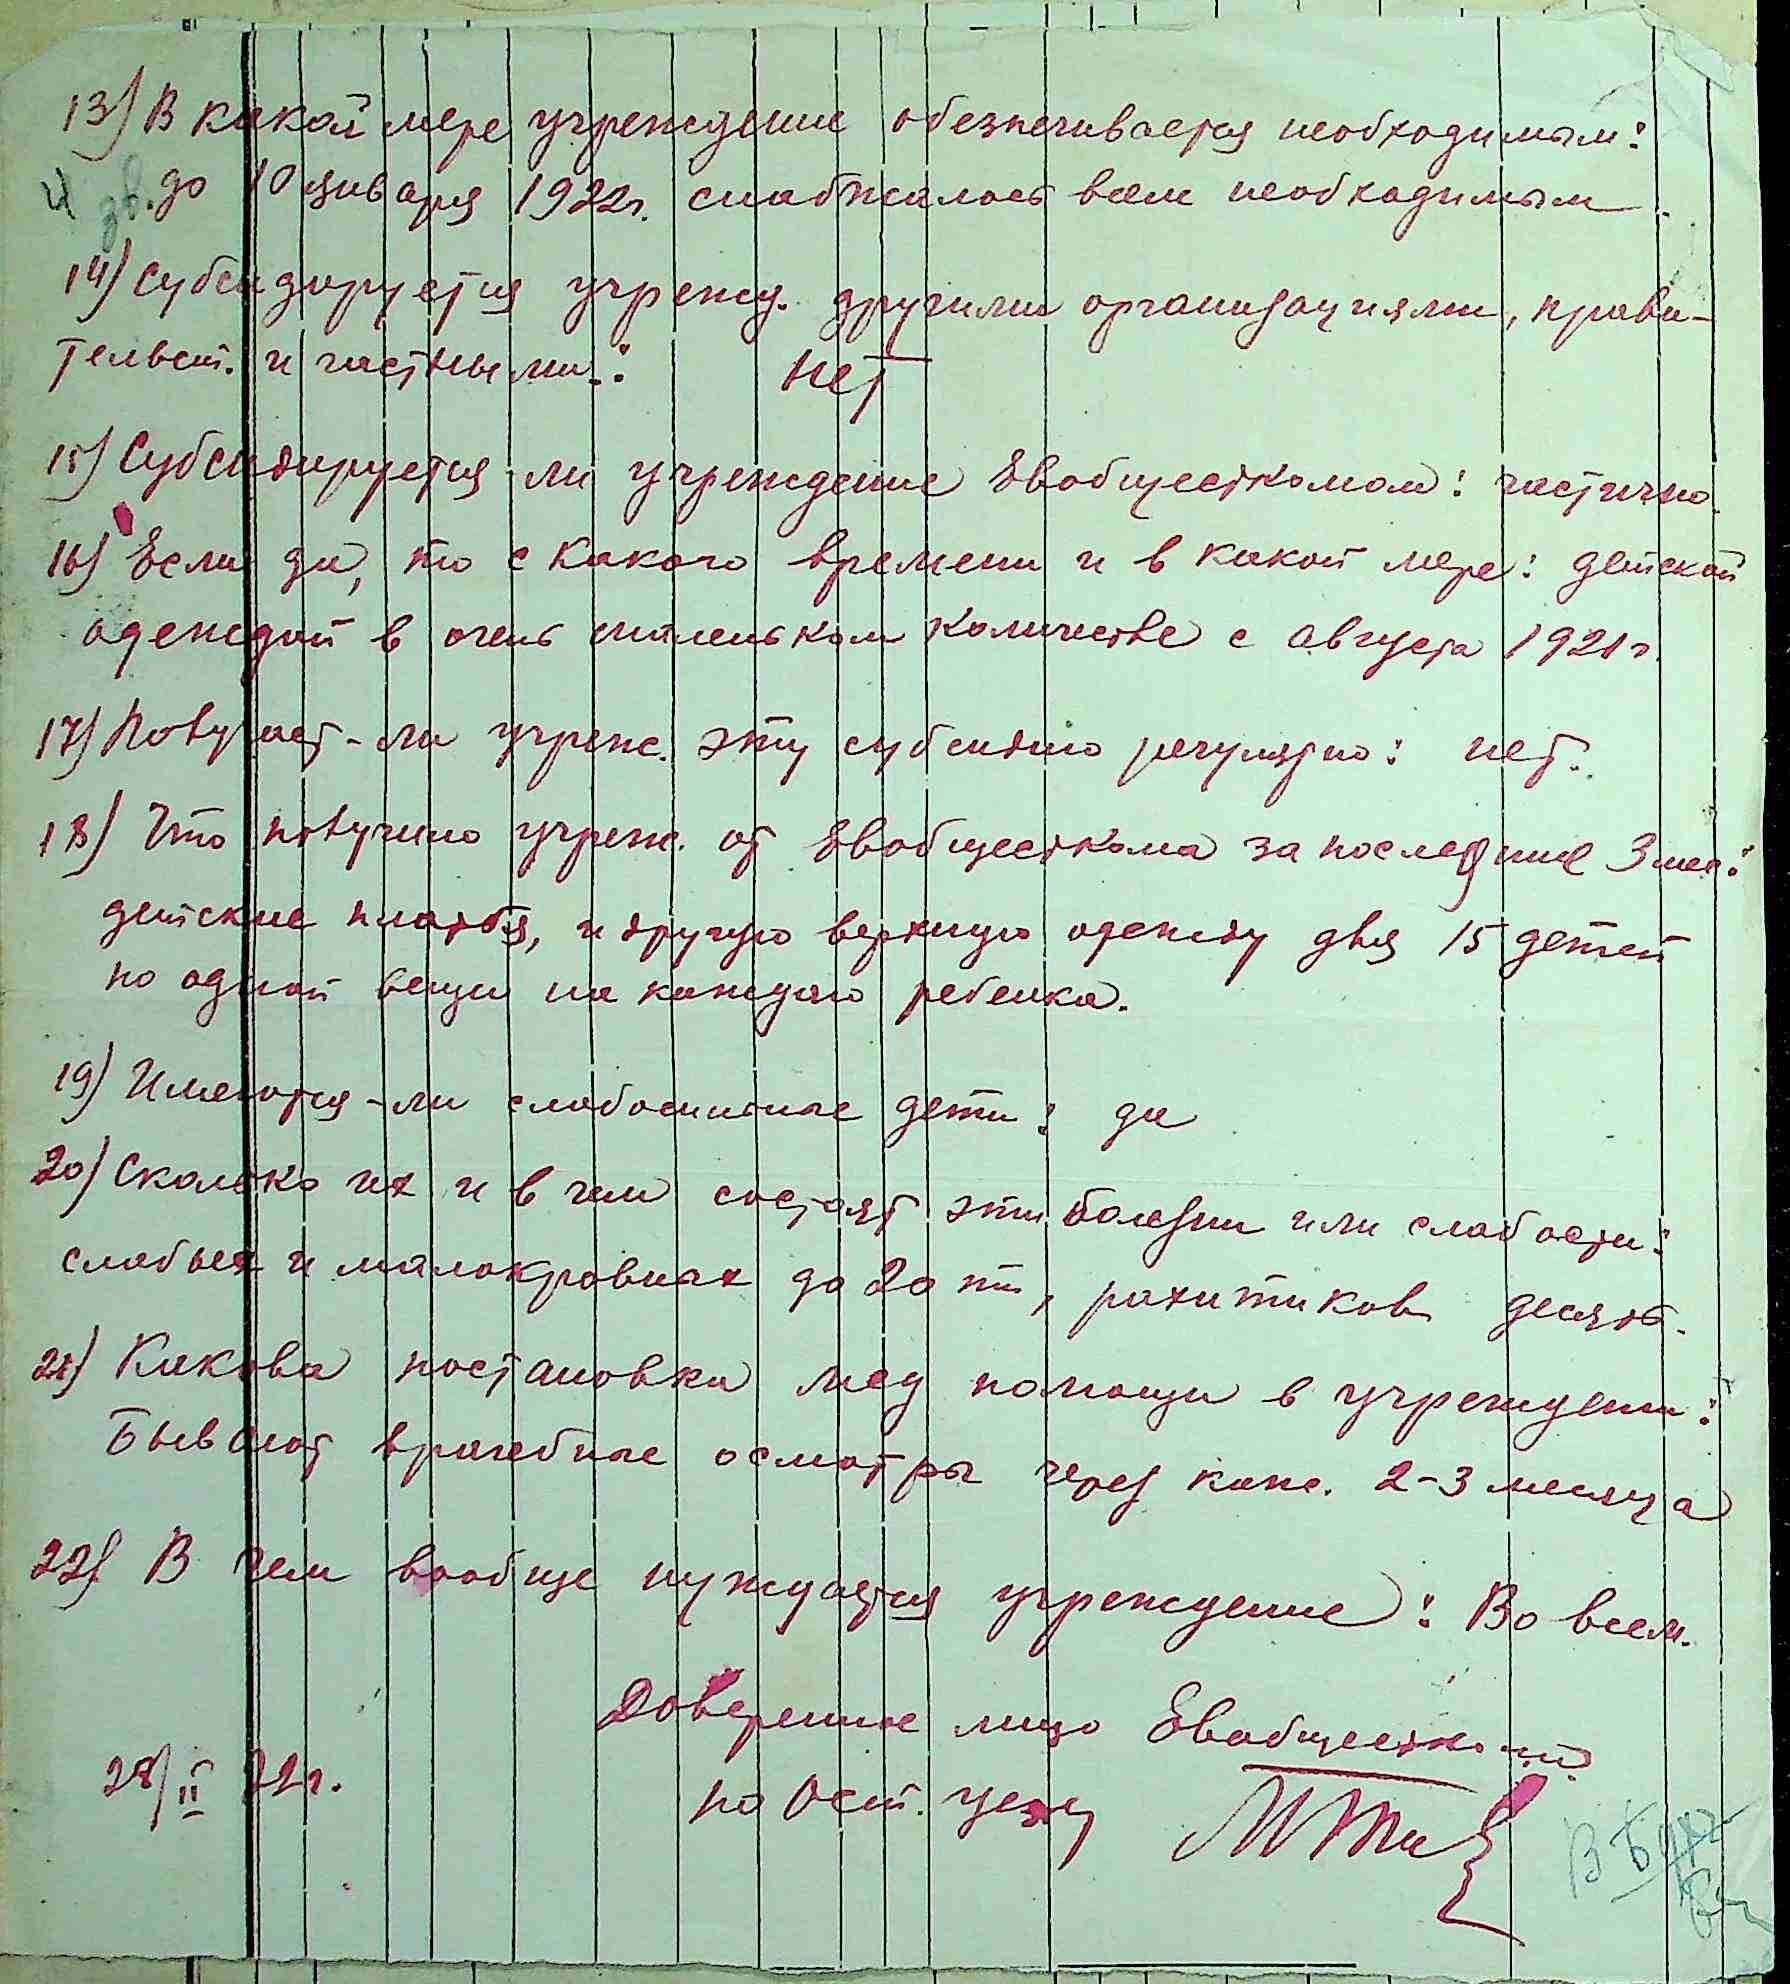 13) В какой мере учреждение обезпечивается необходимым:
до 10 января 1922 г. снабжалось всем необходимым.
14) Субсидируется учрежд. другими организациями, прави-
тельст. и частными: нет
15) Субсидируется-ли учреждение Евобщесткомом: частично.
16) Если да, то с какого времени и в какой мере: детской
одеждой в очень маленьком количестве с августа 1921 г.
17) Получает-ли учреж. эту субсидию регулярно: нет.
18) Что получило учреж. от Евобщесткома за последние 3 мес.:
детские платья, и другую верхнюю одежду для 15 детей
по одной вещи на каждого ребенка.
19) Имеются-ли слабосильные дети: да
20) Сколько их и в чем состоят эти болезни или слабости:
слабых и малокровных до 20 ти, рахитиков десять.
21) Какова постановка мед помощи в учреждении:
Бывают врачебные осмотры через кажд. 2-3 месяца
22) В чем вообще нуждается учреждение: Во всем.
Доверенное лицо Евобщестком
28/II 22 г. по Ост. уезду